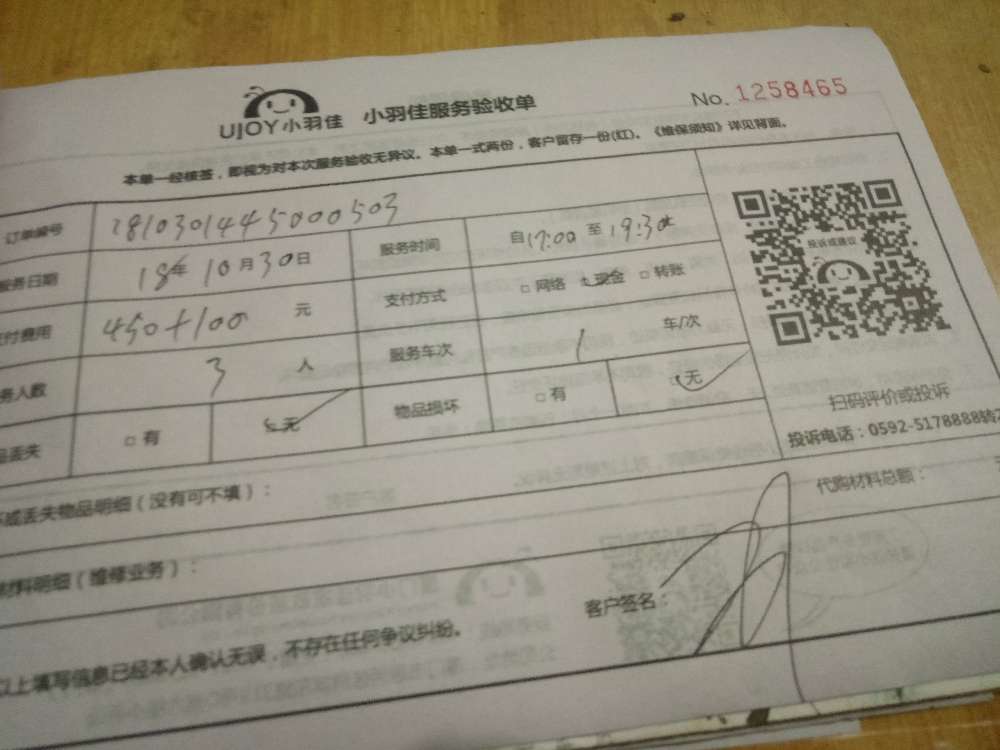 UJOY小羽佳 小羽佳服务验收单 No. 1258465
本单一经核签，即视为对本次服务验收无异议。本单一式两份，客户留存一份(红)。《维保须知》详见背面。
订单编号 1810301445000503
服务日期 18年10月30日 服务时间 自17:00至19:30
支付费用 450+100 元 支付方式 □网络 现金 □转账
务人数 3 人 服务车次 1 车/次
品丢失 □有 无 物品损坏 □有 无
投诉或建议
扫码评价或投诉
投诉电话：0592-5178888转
坏或丢失物品明细（没有可不填）：
代购材料总额：
材料明细（维修业务）：
客户签名：
以上填写信息已经本人确认无误，不存在任何争议纠纷。